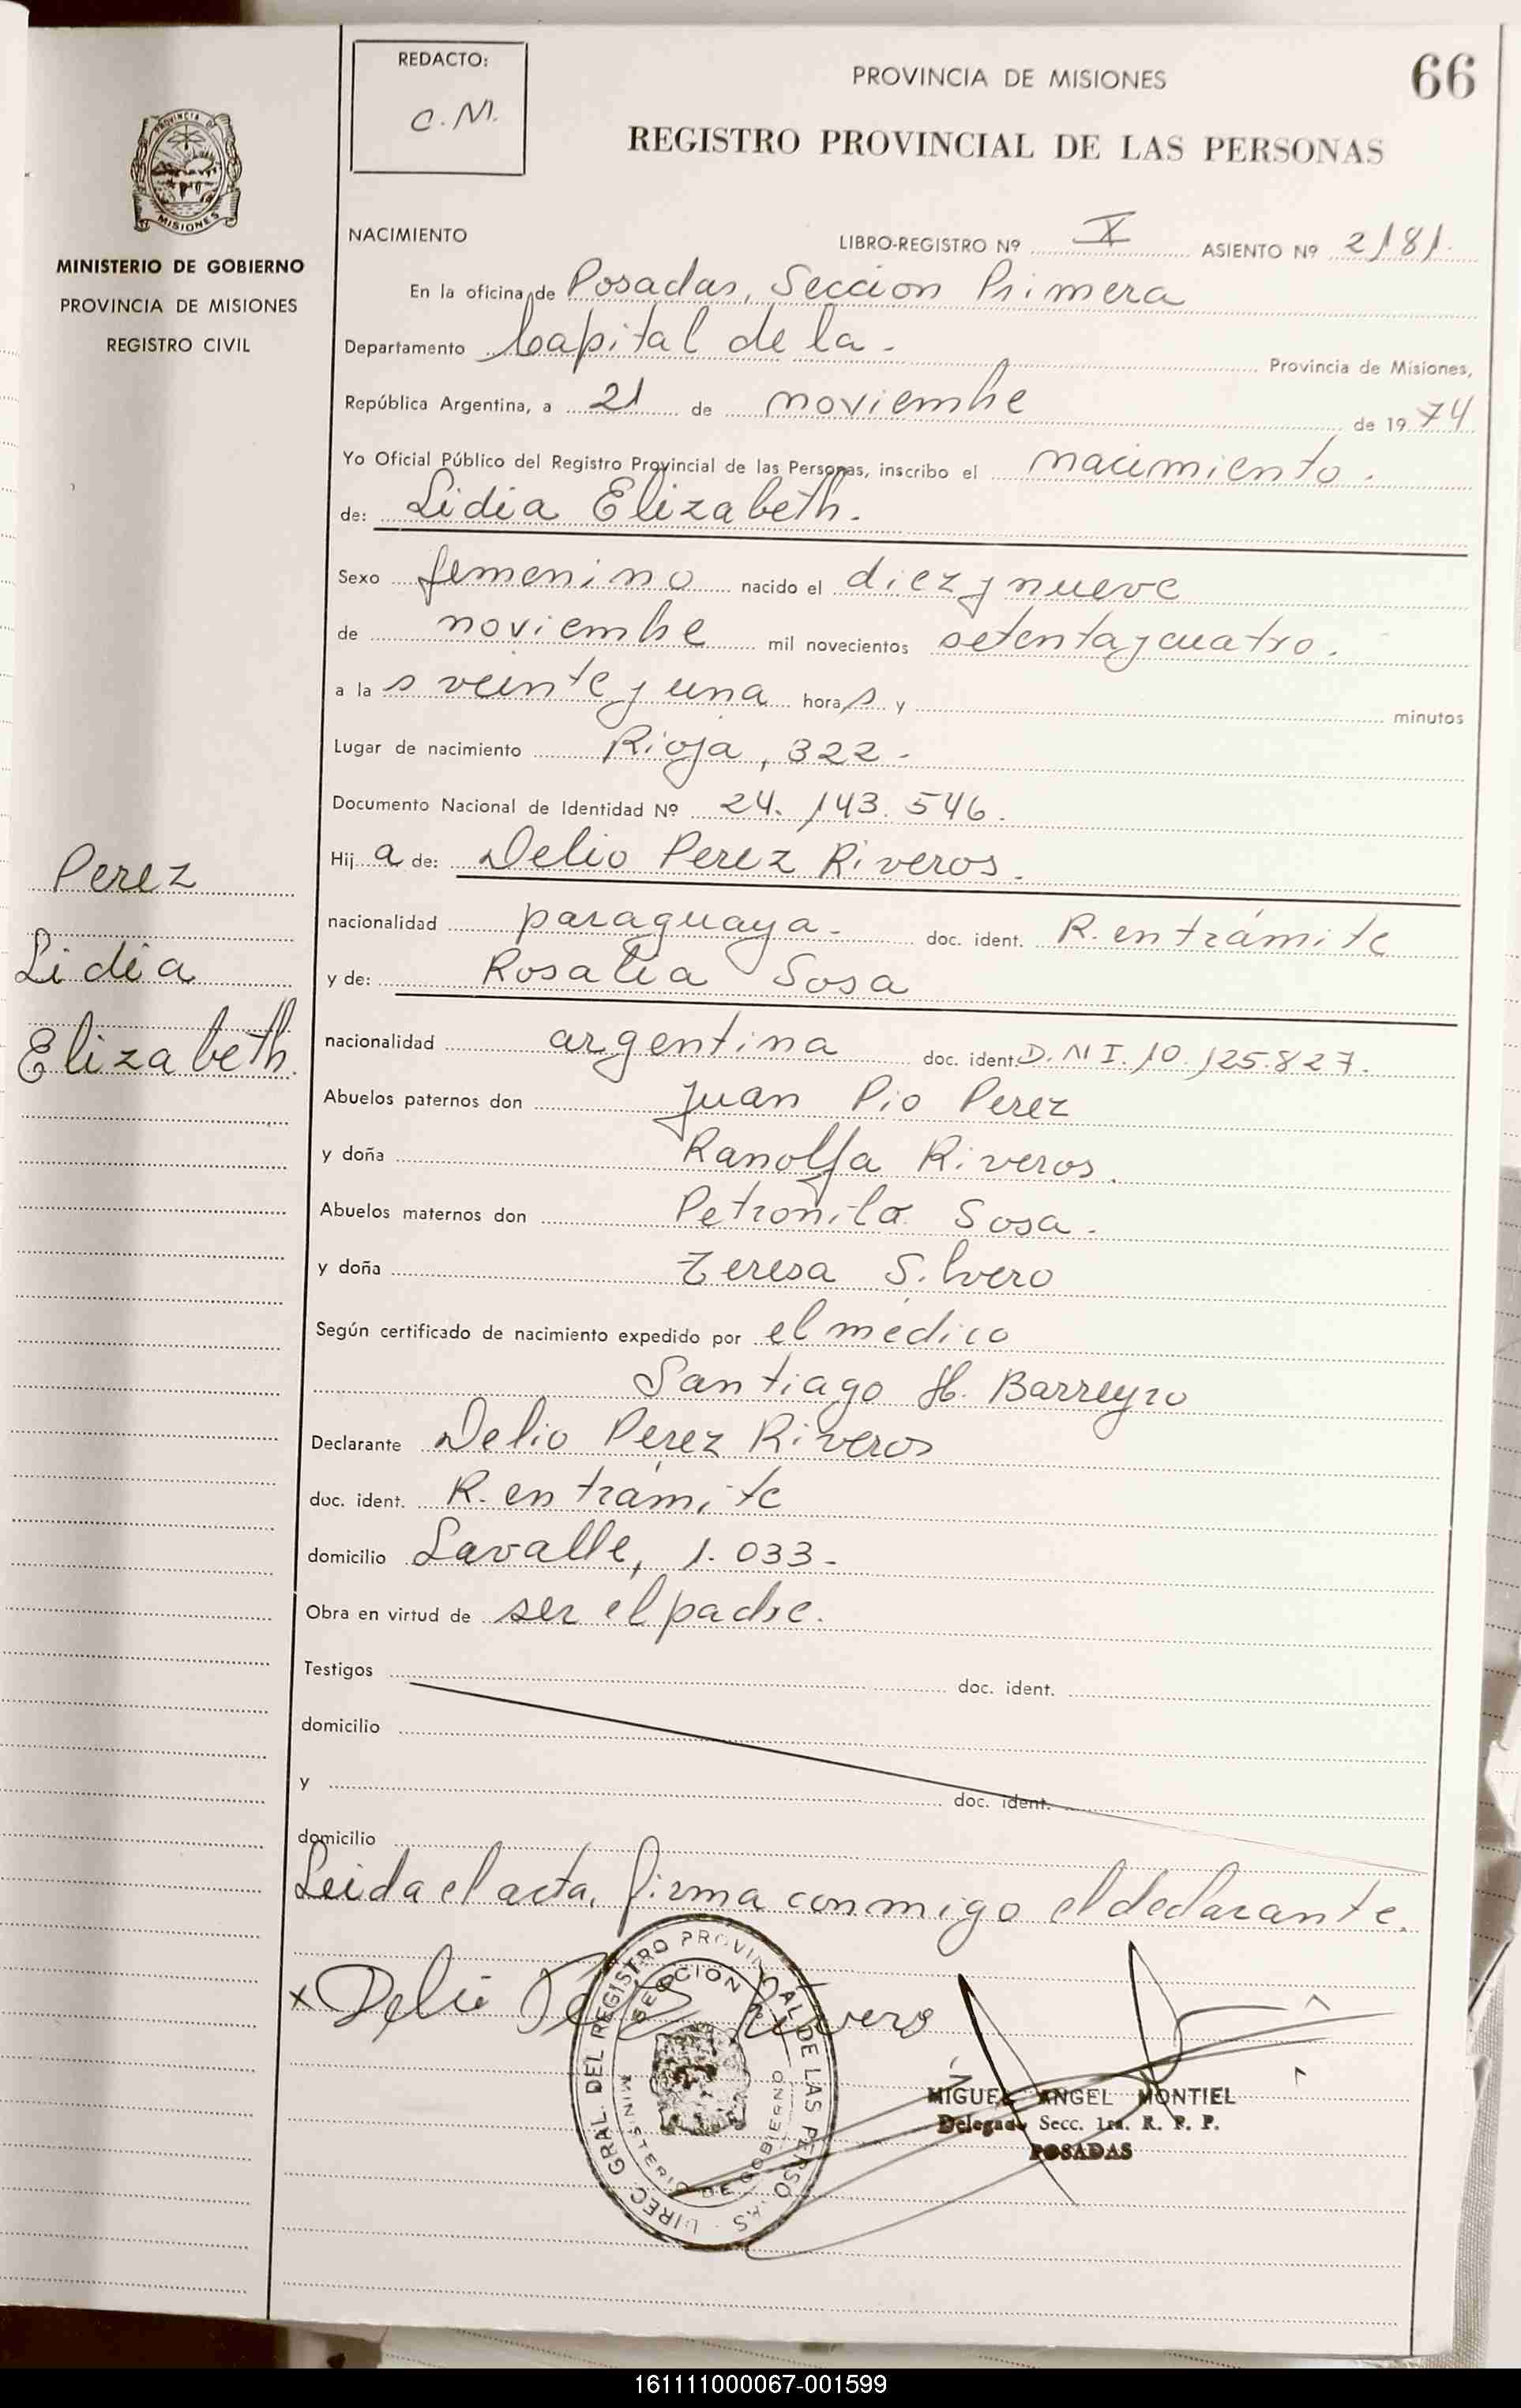 REDACTO:
C.M.
PROVINCIA DE MISIONES
66
REGISTRO PROVINCIAL DE LAS PERSONAS
PROVINCIA DE
MISIONES
MINISTERIO DE GOBIERNO
PROVINCIA DE MISIONES
REGISTRO CIVIL
NACIMIENTO
LIBRO-REGISTRO Nº X ASIENTO Nº 2181.
En la oficina de Posadas, Seccion Primera
Departamento Capital de la - Provincia de Misiones,
República Argentina, a 21 de noviembre de 1974
Yo Oficial Público del Registro Provincial de las Personas, inscribo el nacimiento.
de: Lidia Elizabeth.
Sexo femenino nacido el diez y nueve
de noviembre mil novecientos setenta y cuatro.
a las veinte y una horas y minutos
Lugar de nacimiento Rioja, 322-
Documento Nacional de Identidad Nº 24.143.546.
Hija de: Delio Perez Riveros.
nacionalidad paraguaya- doc. ident. R. en trámite
y de: Rosalia Sosa
nacionalidad argentina doc. ident. D.N I. 10.125.827.
Abuelos paternos don Juan Pio Perez
y doña Ranolfa Riveros.
Abuelos maternos don Petronilo Sosa-
y doña Teresa Silvero
Según certificado de nacimiento expedido por el médico
Santiago H. Barreyro
Declarante Delio Perez Riveros
doc. ident. R. en trámite
domicilio Lavalle, 1.033-
Obra en virtud de ser el padre.
Testigos doc. ident.
domicilio
y doc. ident.
domicilio
Leida el acta, firma conmigo el declarante.
Perez
Lidia
Elizabeth.
x Delio Perez Riveros
DIREC. GRAL. DEL REGISTRO PROVINCIAL DE LAS PERSONAS
SECCION
MINISTERIO DE GOBIERNO
MIGUEL ANGEL MONTIEL
Delegado Secc. 1ra. R. P. P.
POSADAS
161111000067-001599